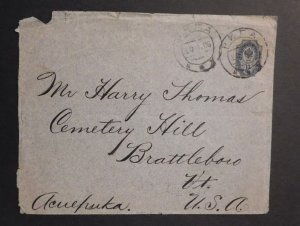 РИГА
РИГА
Mr Harry Thomas
Cemetery Hill
Brattleboro
Vt.
Америка. U.S.A